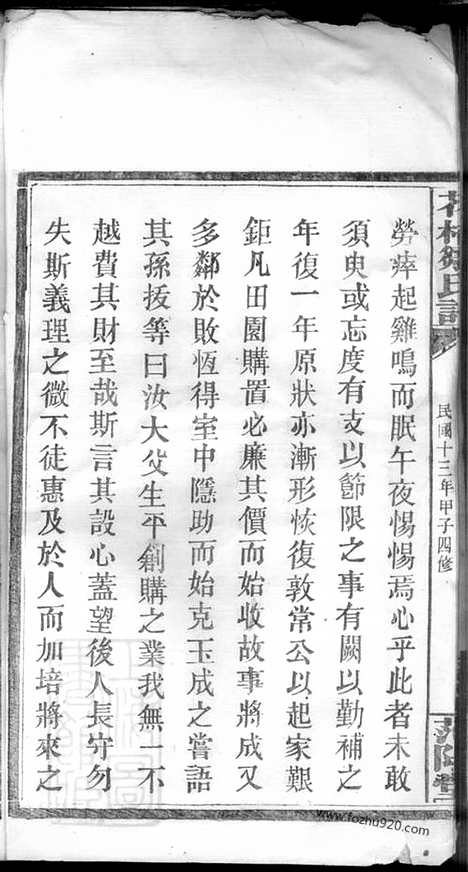 民國十三年甲子四修
勞瘁起雞鳴而眠午夜惕惕焉心乎此者未敢
須臾或忘度有支以節限之事有闕以勤補之
年復一年原狀亦漸形恢復敦常公以起家艱
鉅凡田園購置必廉其價而始收故事將成又
多鄰於敗恆得室中隱助而始克玉成之嘗語
其孫拔等曰汝大父生平創購之業我無一不
越費其財至哉斯言其設心蓋望後人長守勿
失斯義理之微不徒惠及於人而加培將來之
www.fozhu920.com